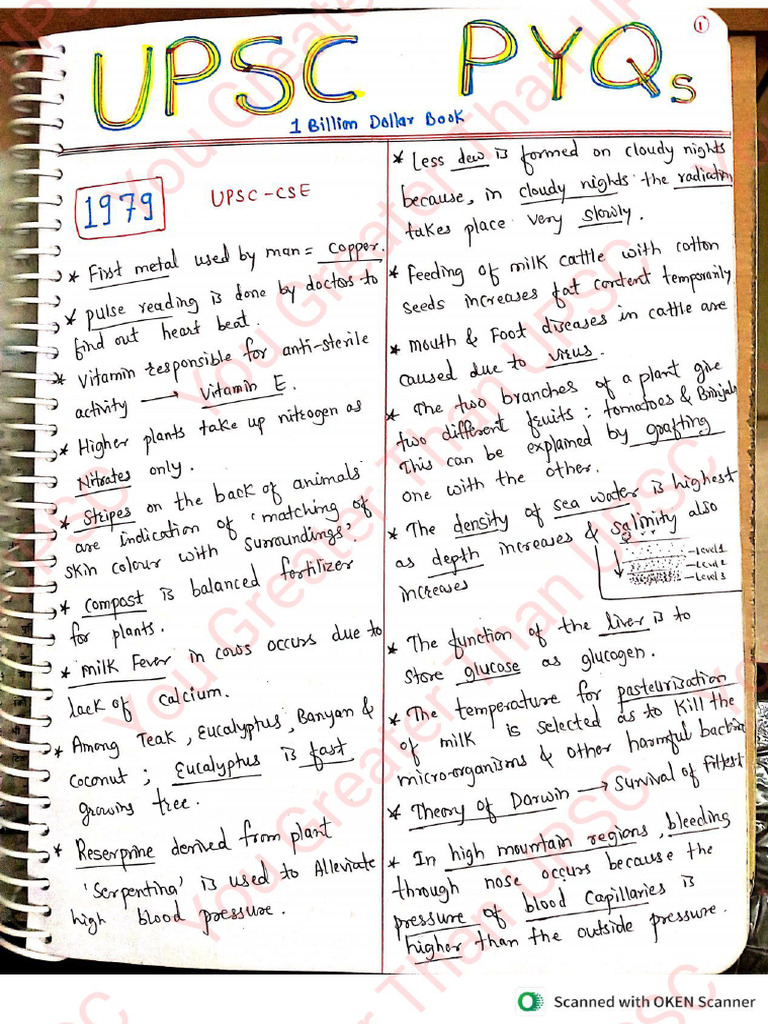 1
UPSC PYQs
1 Billion Dollar Book
1979 UPSC-CSE
* First metal used by man = copper.
* pulse reading is done by doctors to
find out heart beat.
* Vitamin responsible for anti-sterile
activity → Vitamin E.
* Higher plants take up nitrogen as
Nitrates only.
* Stripes on the back of animals
are indication of 'matching of
skin colour with surroundings'.
* compost is balanced fertilizer
for plants.
* Milk Fever in cows occurs due to
lack of calcium.
* Among Teak, Eucalyptus, Banyan &
coconut; Eucalyptus is fast
growing tree.
* Reserpine derived from plant
'Serpentina' is used to Alleviate
high blood pressure.
* Less dew is formed on cloudy nights
because, in cloudy nights the radiation
takes place very slowly.
* Feeding of milk cattle with cotton
seeds increases fat content temporarily
* Mouth & Foot diseases in cattle are
caused due to virus.
* The two branches of a plant give
two different fruits: tomatoes & Brinjals
This can be explained by grafting
one with the other.
* The density of sea water is highest
as depth increases & salinity also
increases
Level 1
Level 2
Level 3
* The function of the liver is to
store glucose as glucogen.
* The temperature for pasteurisation
of milk is selected as to Kill the
micro-organisms & other harmful bacteria
* Theory of Darwin → Survival of fittest
* In high mountain regions, bleeding
through nose occurs because the
pressure of blood capillaries is
higher than the outside pressure.
You Greater Than UPSC
Scanned with OKEN Scanner